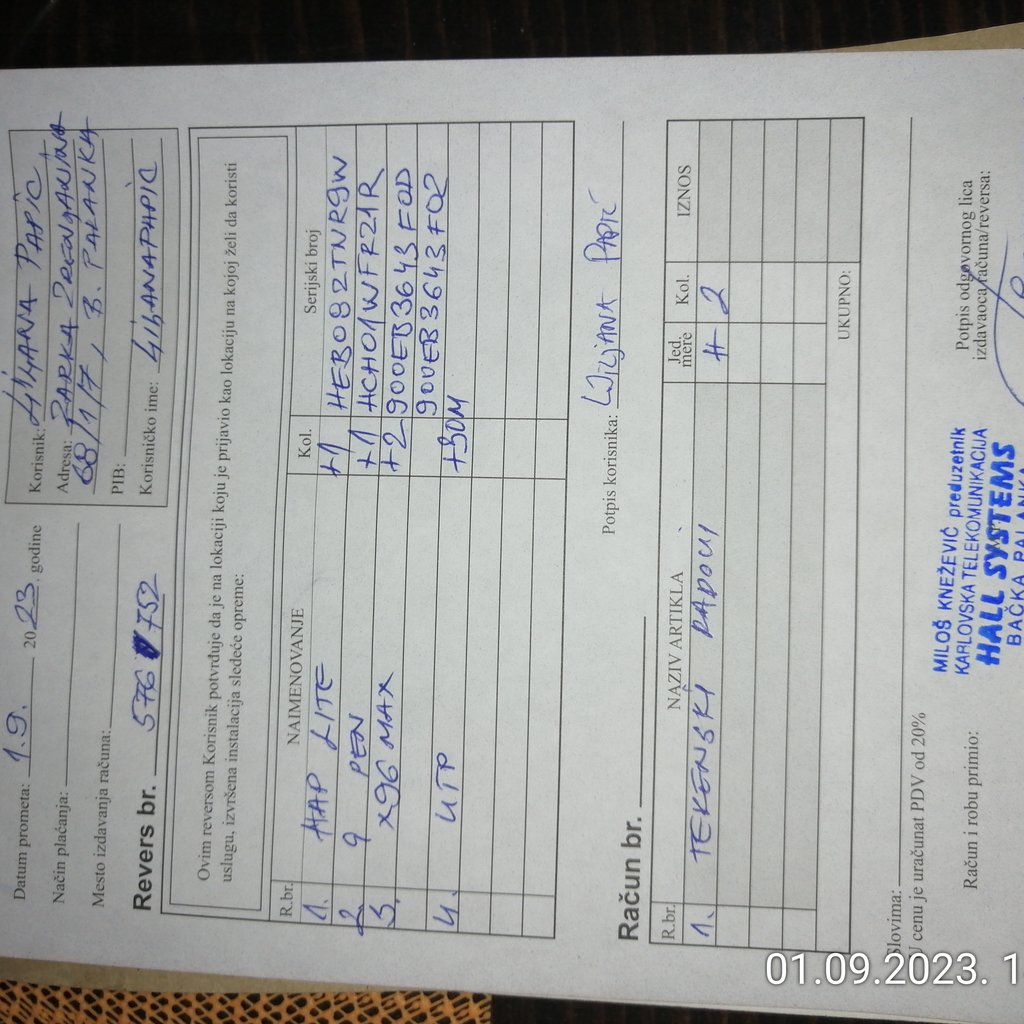 Datum prometa: 1.9. 2023. godine
Način plaćanja:
Mesto izdavanja računa:
Revers br. 576 752
Korisnik: Ljiljana Papić
Adresa: ŽARKA ZRENJANINA
68/1/7, B. PALANKA
PIB:
Korisničko ime: LJILJANAPAPIC
Ovim reversom Korisnik potvrđuje da je na lokaciji koju je prijavio kao lokaciju na kojoj želi da koristi
uslugu, izvršena instalacija sledeće opreme:
R.br. NAIMENOVANJE Kol. Serijski broj
1. HAP LITE +1 HEB082TNR9W
2. 9 PEN +1 HCH01WFRZ1R
3. X96 MAX +2 900EB3643FOD
900EB3643F02
4. UTP +30M
Potpis korisnika: LJILJANA PAPIĆ
Račun br.
R.br. NAZIV ARTIKLA Jed. mere Kol. IZNOS
1. TEKENSKI RADOVI H 2
UKUPNO:
Slovima:
U cenu je uračunat PDV od 20%
Račun i robu primio:
Potpis odgovornog lica
izdavaoca računa/reversa:
MILOŠ KNEŽEVIĆ preduzetnik
KARLOVSKA TELEKOMUNIKACIJA
HALL SYSTEMS
BAČKA PALANKA
01.09.2023. 1